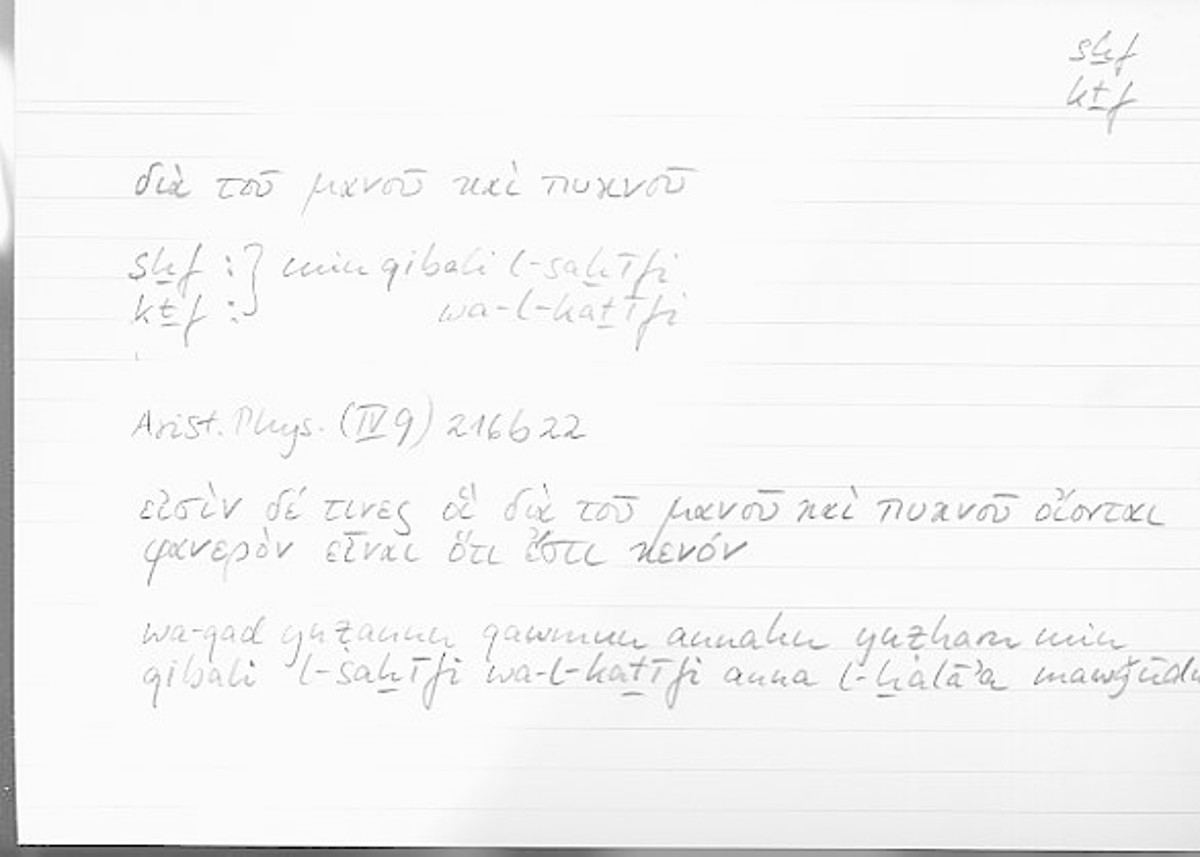 sḫf
kṯf
διὰ τοῦ μανοῦ καὶ πυκνοῦ
sḫf :} min qibali l-saḫīfi
kṯf : wa-l-kaṯīfi
Arist. Phys. (IV 9) 216b22
εἰσὶν δέ τινες οἳ διὰ τοῦ μανοῦ καὶ πυκνοῦ οἴονται
φανερὸν εἶναι ὅτι ἔστι κενόν
wa-qad yuẓannu qawmun annahu yuẓharu min
qibali l-saḫīfi wa-l-kaṯīfi anna l-ḫalāʾa mawǧūdu